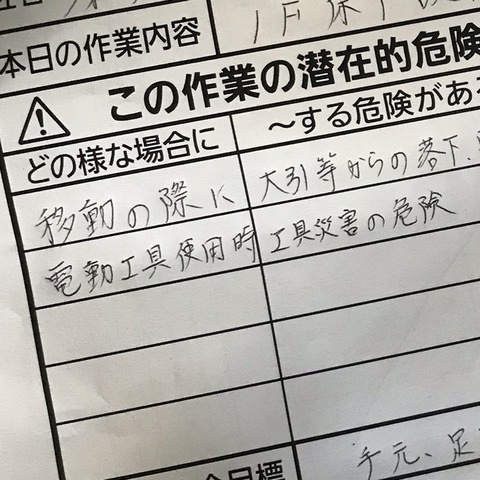 本日の作業内容
この作業の潜在的危険
どの様な場合に ～する危険がある
移動の際に 大引等からの落下、
電動工具使用時 工具災害の危険
目標 手元、足